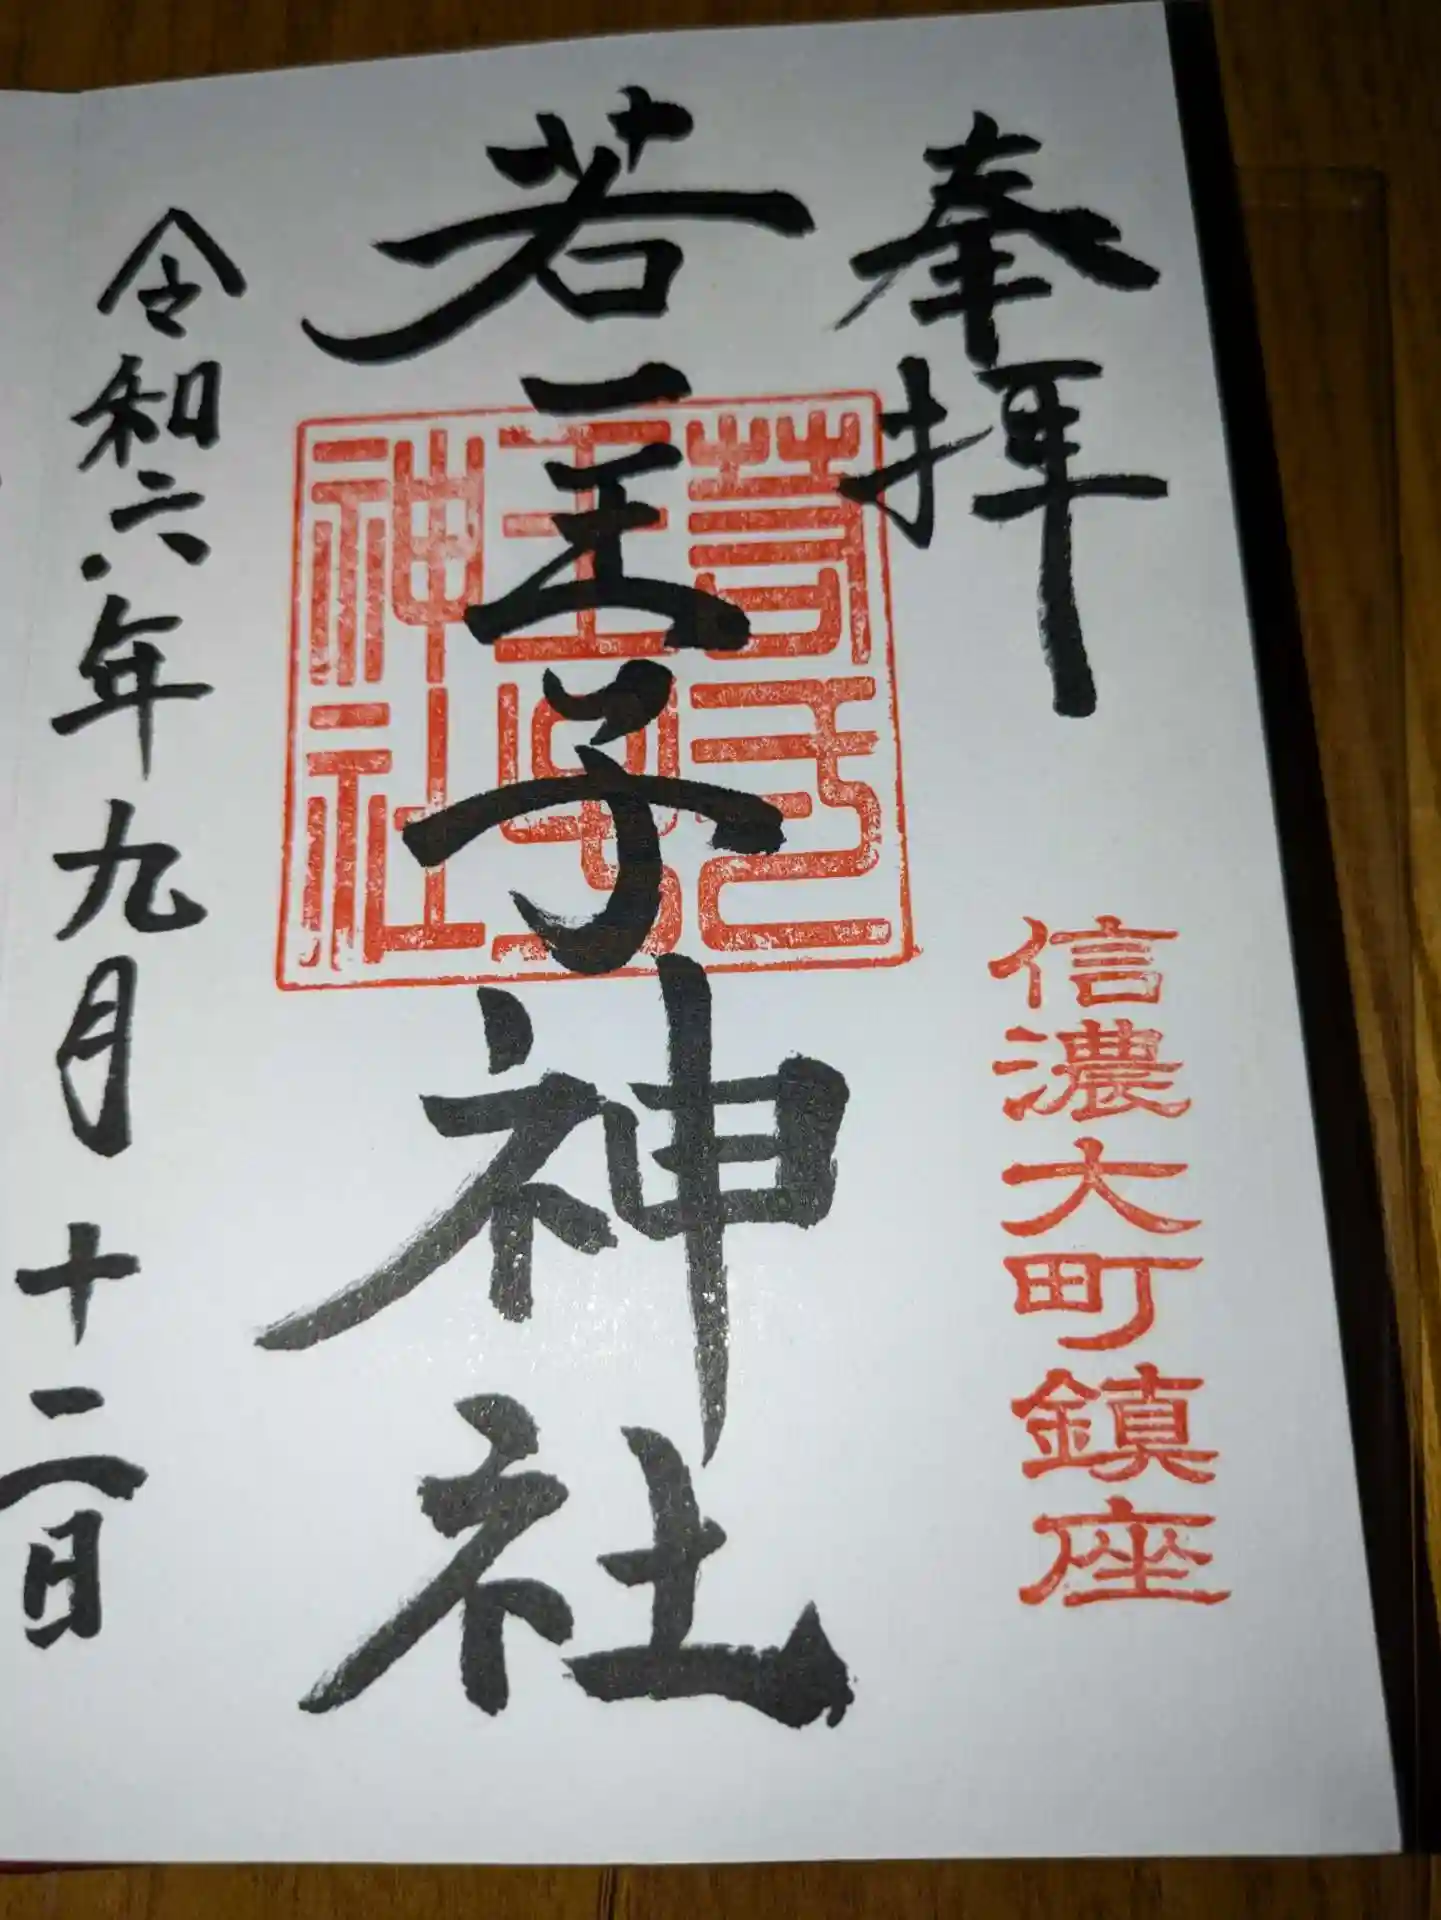 奉拝
信濃大町鎮座
若一王子神社
若一王子神社
令和六年九月十二日